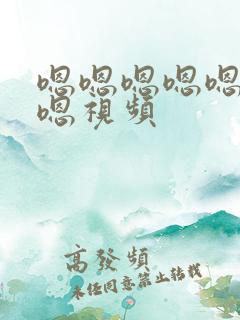 嗯嗯嗯嗯嗯
嗯視頻
高發頻
未經同意禁止轉載